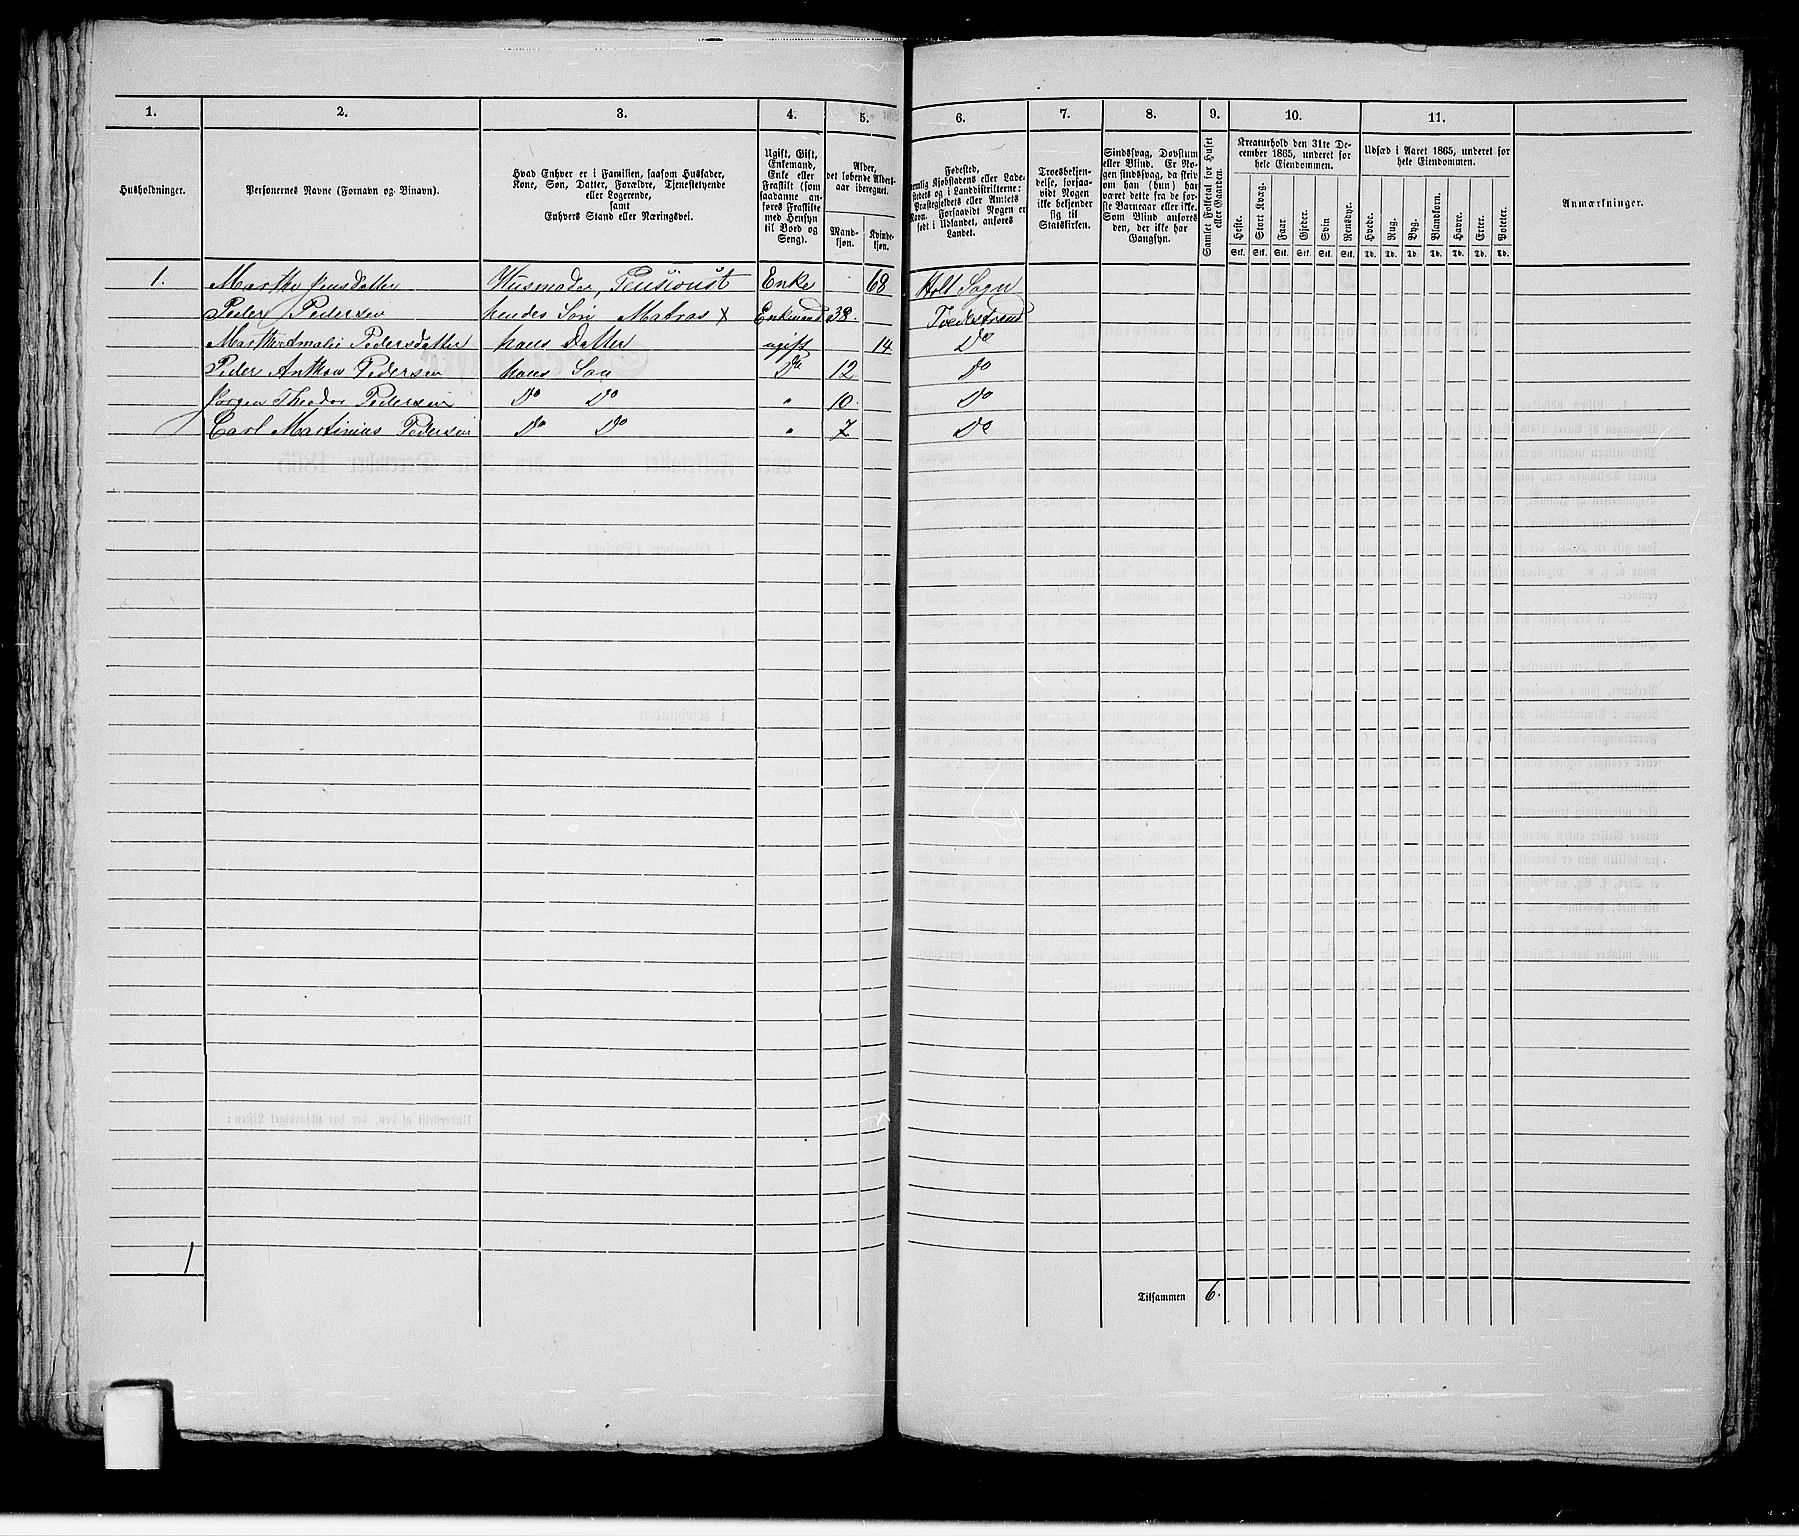 1. 2. 3. 4. 5. 6. 7. 8. 9. 10. 11.
Husholdninger.
Personernes Navne (Fornavn og Binavn).
Hvad Enhver er i Familien, saasom Husfader,
Kone, Søn, Datter, Forældre, Tjenestetyende
eller Logerende,
samt
Enhvers Stand eller Næringsvei.
Ugift, Gift,
Enkemand,
Enke eller
Fraskilt (som
saadanne an-
føres Fraskilte
med Hensyn
til Bord og
Seng).
Alder,
det løbende Alders-
aar iberegnet.
Mand-
kjøn.
Kvinde-
kjøn.
Fødested,
nemlig Kjøbstadens eller Lade-
stedets og i Landdistrikterne:
Præstegjeldets eller Amtets
Navn. Forsaavidt Nogen er
født i Udlandet, anføres
Landet.
Troesbekjen-
delse, forsaa-
vidt Nogen
ikke bekjender
sig til
Statskirken.
Sindssvag, Døvstum
eller Blind. Er No-
gen sindssvag, da skriv
om han (hun) har
været dette fra de før-
ste Barneaar eller ikke.
Som Blind anføres
den, der ikke har
Gangsyn.
Samlet Folketal for Huset
eller Gaarden.
Kreaturhold den 31te De-
cember 1865, underet for
hele Eiendommen.
Heste. Stort Kvæg. Faar. Gjeder. Svin. Rensdyr.
Stk. Stk. Stk. Stk. Stk. Stk.
Udsæd i Aaret 1865, underet for
hele Eiendommen.
Hvede. Rug. Byg. Blandkorn. Havre. Erter. Poteter.
Td. Td. Td. Td. Td. Td. Td.
Anmærkninger.
1. Marthe Jensdatter Husmoder, Pensionist Enke 68 Holt Sogn
Peder Pedersen hendes Søn Matros x Enkemand 38. Tvedestrand
Marthe Amalie Pedersdatter hans Datter ugift 14 Do
Peder Anthon Pedersen hans Søn Do 12 Do
Jørgen Theodor Pedersen Do Do " 10. Do
Carl Martinius Pedersen Do Do " 7 Do
1
Tilsammen 6.